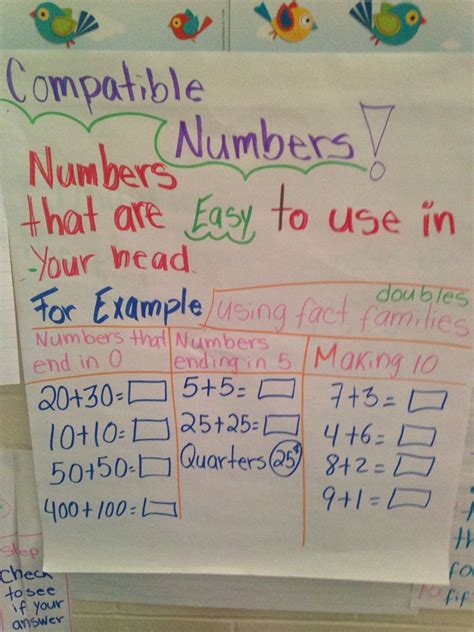 Compatible
Numbers!
Numbers
that are Easy to use in
your head
For Example
doubles
using fact families
Numbers that
end in 0
20+30=
10+10=
50+50=
400+100=
Numbers
ending in 5
5+5=
25+25=
Quarters 25¢
Making 10
7+3=
4+6=
8+2=
9+1=
step
Check
to see
if your
answer
10